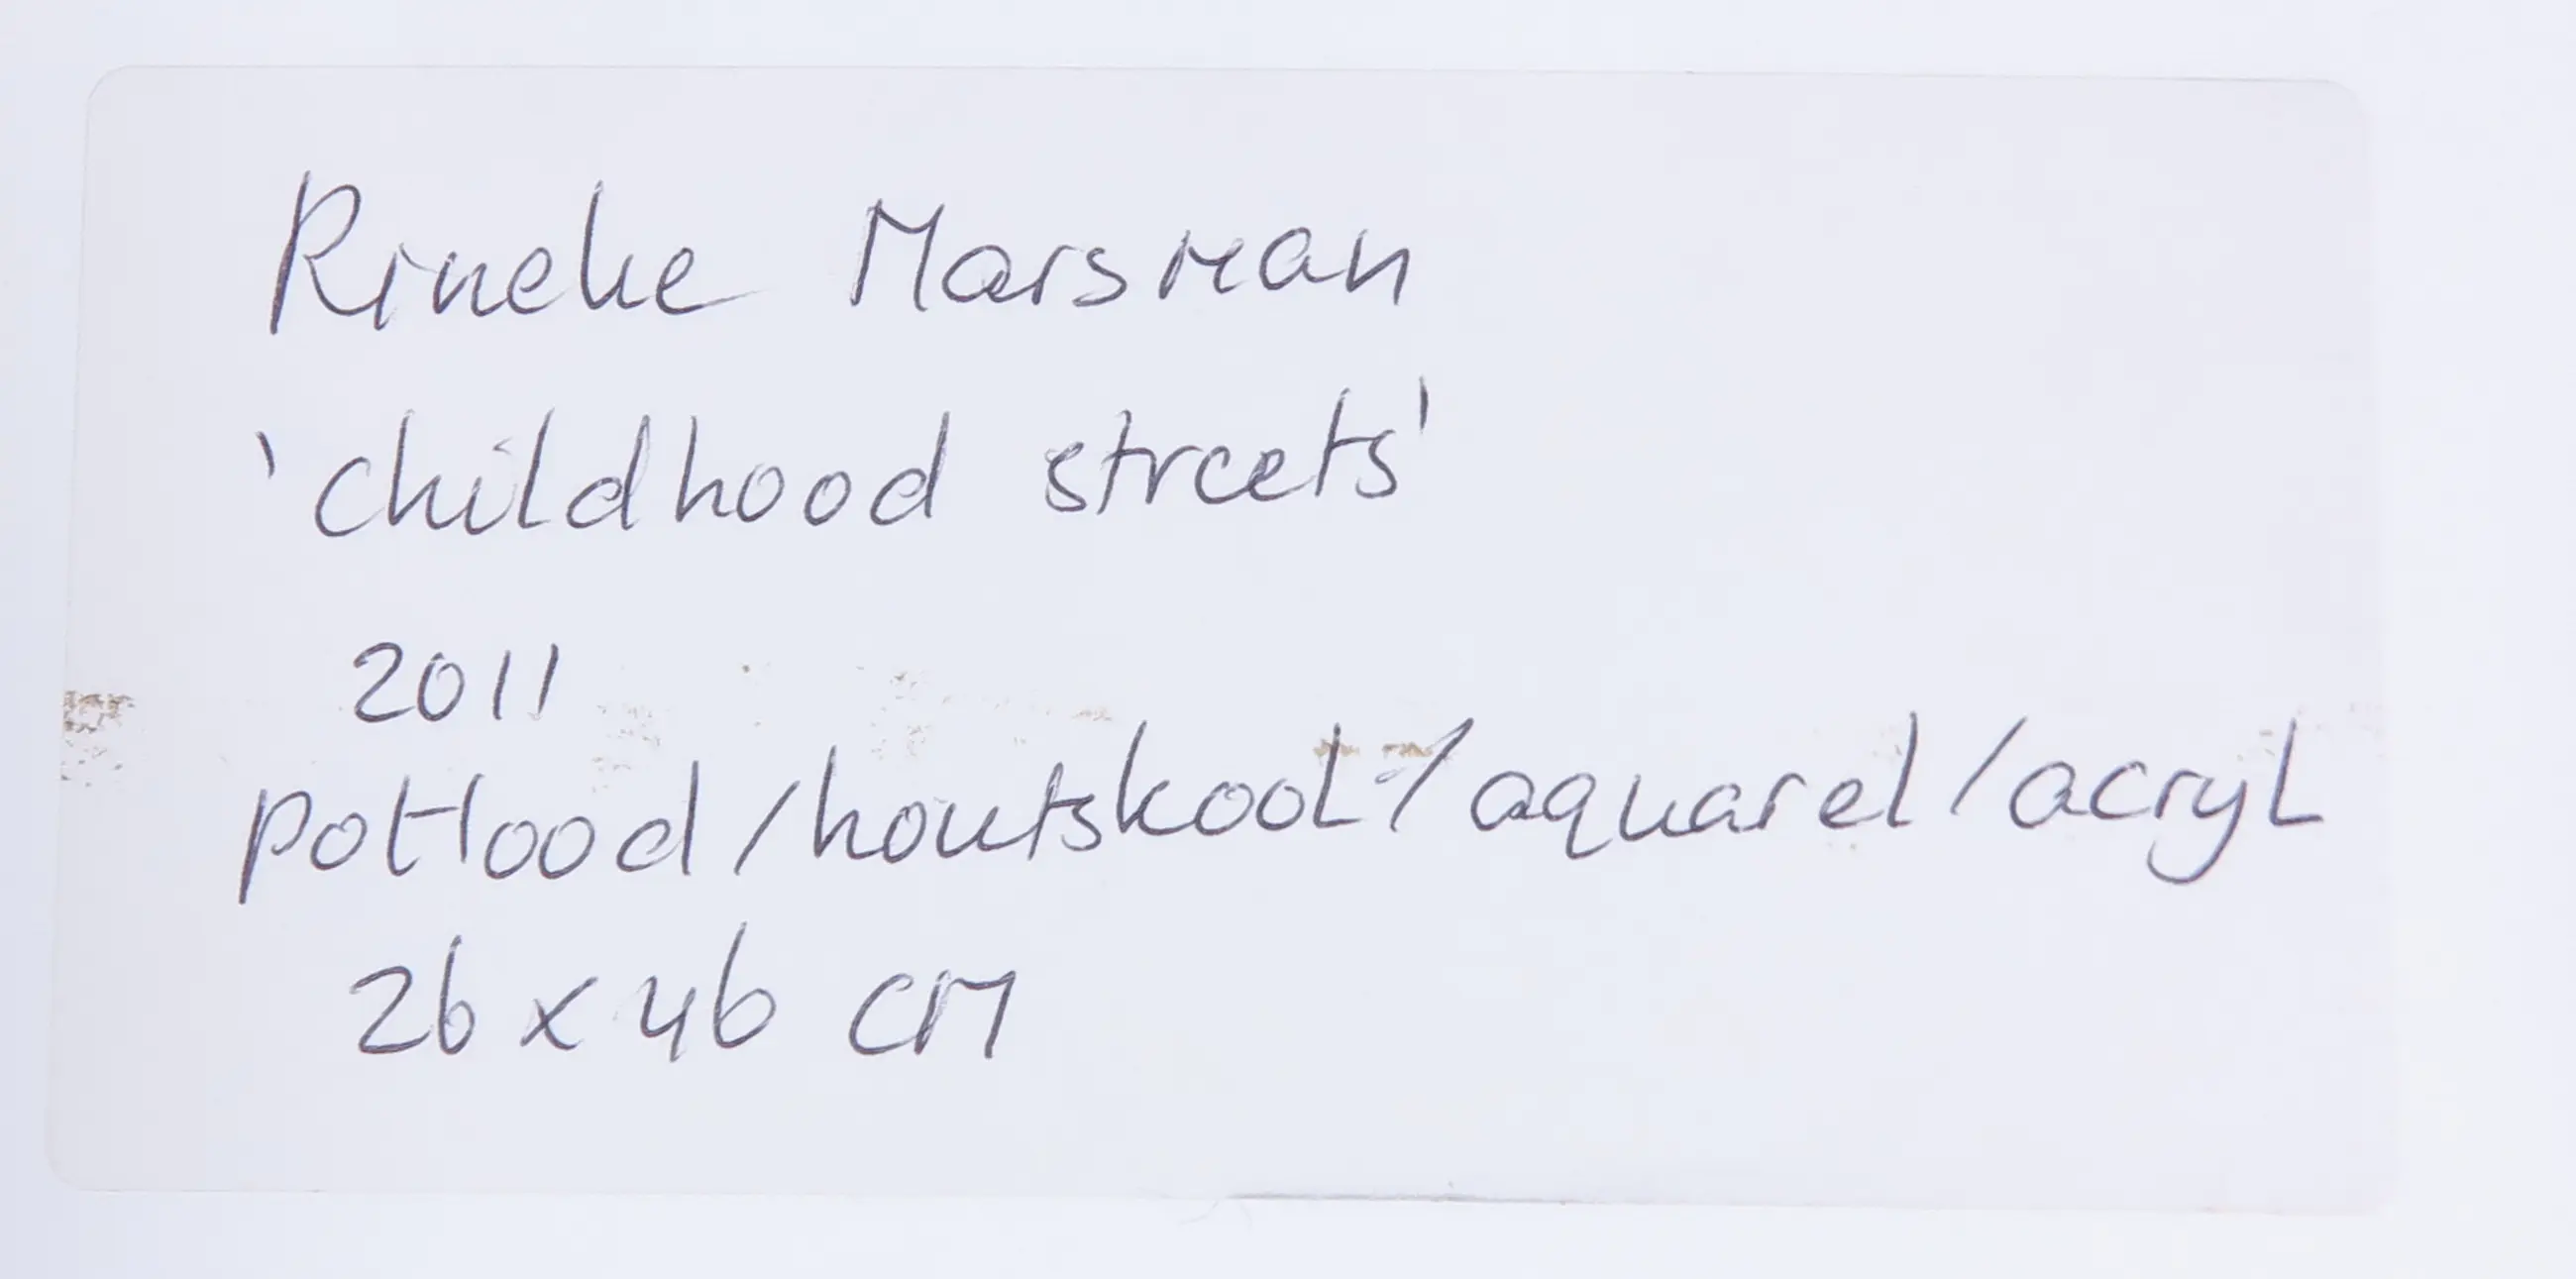 Rineke Marsman
'childhood streets'
2011
potlood/houtskool/aquarel/acryl
26 x 46 cm